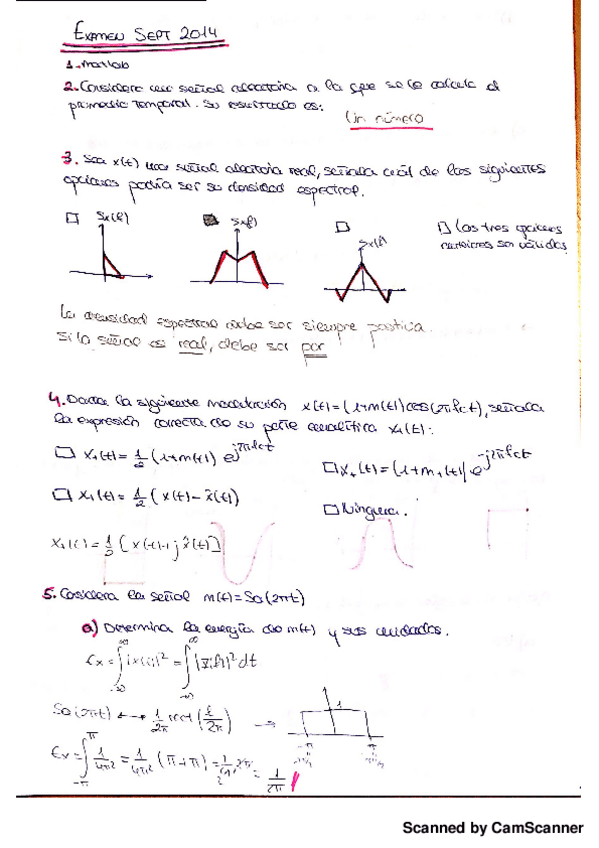 EXAMEN SEPT 2014
1. Matlab
2. Considere una señal aleatoria a la que se le calcula el
promedio temporal. Su resultado es:
Un número
3. Sea x(t) una señal aleatoria real, señala cuál de las siguientes
opciones podría ser su densidad espectral.
□ Sx(f)
Sx(f)
□ Sx(f)
□ Las tres opciones
anteriores son válidas
La densidad espectral debe ser siempre positiva.
Si la señal es real, debe ser par
4. Dada la siguiente modulación x(t)=(1+m(t))cos(2πfct), señala
la expresión correcta de su parte analítica x₊(t):
□ x₊(t)=½(1+m(t)) e^j2πfct
□ x₊(t)=(1+m₊(t)) e^-j2πfct
□ x₊(t)=½(x(t)-x̂(t))
□ Ninguna.
x₊(t)=½[x(t)+jx̂(t)]
5. Cosidera la señal m(t)=Sa(2πt)
a) Determina la energía de m(t) y sus unidades.
Ex=∫|x(t)|²=∫|X(f)|²dt
Sa(2πt) ↔ 1/2π rect(f/2π) →
1
-π π
Ex=∫ 1/4π² = 1/4π² (π+π) = 1/4π² 2π = 1/2π
Scanned by CamScanner